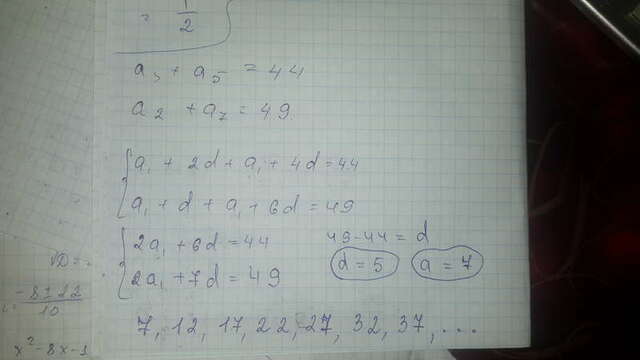 = 1/2
a₃ + a₅ = 44
a₂ + a₇ = 49
a₁ + 2d + a₁ + 4d = 44
a₁ + d + a₁ + 6d = 49
2a₁ + 6d = 44
2a₁ + 7d = 49
49-44 = d
d = 5
a = 7
7, 12, 17, 22, 27, 32, 37, ...
√D =
10
x² - 8x - 1